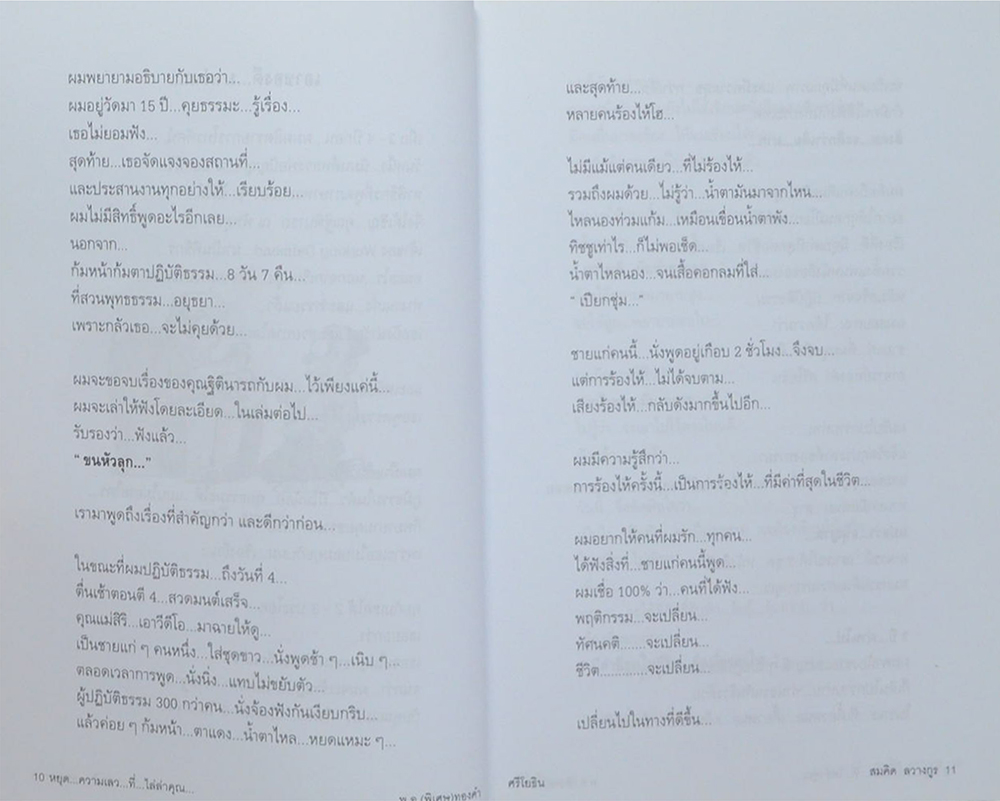 ผมพยายามอธิบายกับเธอว่า...
ผมอยู่วัดมา 15 ปี...คุยธรรมะ...รู้เรื่อง...
เธอไม่ยอมฟัง...
สุดท้าย...เธอจัดแจงจองสถานที่...
และประสานงานทุกอย่างให้...เรียบร้อย...
ผมไม่มีสิทธิ์พูดอะไรอีกเลย...
นอกจาก...
ก้มหน้าก้มตาปฏิบัติธรรม...8 วัน 7 คืน...
ที่สวนพุทธธรรม...อยุธยา...
เพราะกลัวเธอ...จะไม่คุยด้วย...
ผมจะขอจบเรื่องของคุณฐิตินารถกับผม...ไว้เพียงแค่นี้...
ผมจะเล่าให้ฟังโดยละเอียด...ในเล่มต่อไป...
รับรองว่า...ฟังแล้ว...
“ ขนหัวลุก...”
เรามาพูดถึงเรื่องที่สำคัญกว่า และดีกว่าก่อน...
ในขณะที่ผมปฏิบัติธรรม...ถึงวันที่ 4...
ตื่นเช้าตอนตี 4...สวดมนต์เสร็จ...
คุณแม่สิริ...เอาวีดีโอ...มาฉายให้ดู...
เป็นชายแก่ ๆ คนหนึ่ง...ใส่ชุดขาว...นั่งพูดช้า ๆ...เนิบ ๆ...
ตลอดเวลาการพูด...นั่งนิ่ง...แทบไม่ขยับตัว...
ผู้ปฏิบัติธรรม 300 กว่าคน...นั่งจ้องฟังกันเงียบกริบ...
แล้วค่อย ๆ ก้มหน้า...ตาแดง...น้ำตาไหล...หยดแหมะ ๆ...
10 หยุด...ความเลว...ที่...ไล่ล่าคุณ...
พ.อ.(พิเศษ)ทองคำ
และสุดท้าย...
หลายคนร้องไห้โฮ...
ไม่มีแม้แต่คนเดียว...ที่ไม่ร้องไห้...
รวมถึงผมด้วย...ไม่รู้ว่า...น้ำตามันมาจากไหน...
ไหลนองท่วมแก้ม...เหมือนเขื่อนน้ำตาพัง...
ทิชชูเท่าไร...ก็ไม่พอเช็ด...
น้ำตาไหลนอง...จนเสื้อคอกลมที่ใส่...
“ เปียกชุ่ม...”
ชายแก่คนนี้...นั่งพูดอยู่เกือบ 2 ชั่วโมง...จึงจบ...
แต่การร้องไห้...ไม่ได้จบตาม...
เสียงร้องไห้...กลับดังมากขึ้นไปอีก...
ผมมีความรู้สึกว่า...
การร้องไห้ครั้งนี้...เป็นการร้องไห้...ที่มีค่าที่สุดในชีวิต...
ผมอยากให้คนที่ผมรัก...ทุกคน...
ได้ฟังสิ่งที่...ชายแก่คนนี้พูด...
ผมเชื่อ 100% ว่า...คนที่ได้ฟัง...
พฤติกรรม...จะเปลี่ยน...
ทัศนคติ.....จะเปลี่ยน...
ชีวิต.............จะเปลี่ยน...
เปลี่ยนไปในทางที่ดีขึ้น...
ศรีโยธิน
สมคิด ลวางกูร 11